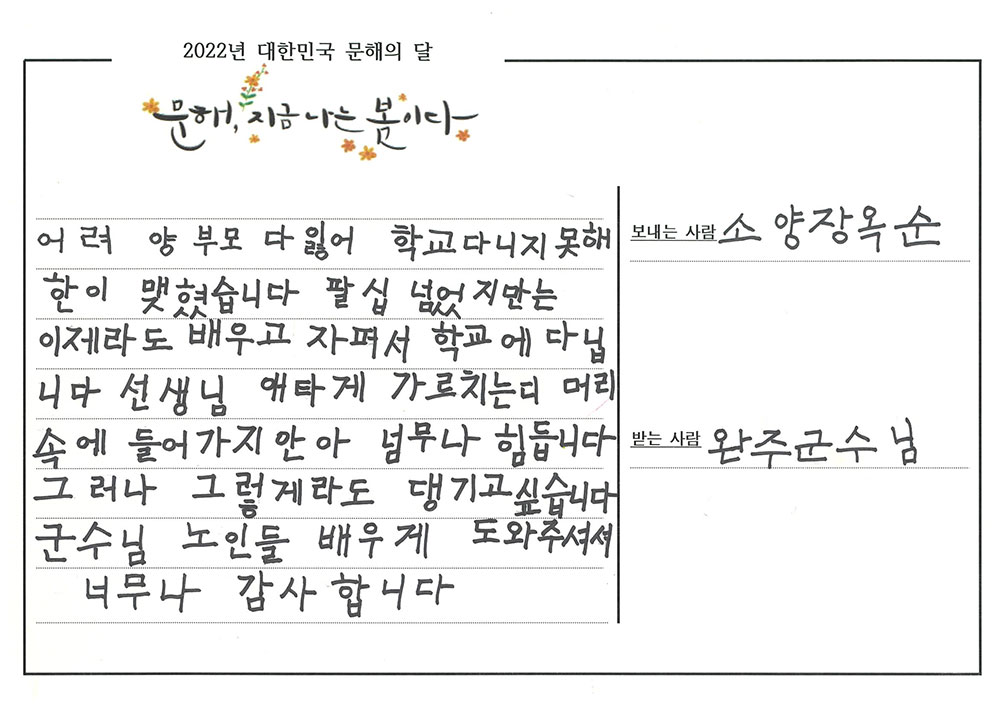 2022년 대한민국 문해의 달
문해, 지금 나는 봄이다
어려 양 부모 다 잃어 학교다니지 못해
한이 맺혔습니다 팔십 넘었지만는
이제라도 배우고 자펴서 학교에 다닙
니다 선생님 애타게 가르치는디 머리
속에 들어가지안아 넘무나 힘듭니다
그러나 그렇게라도 댕기고싶습니다
군수님 노인들 배우게 도와주셔셔
너무나 감사합니다
보내는 사람 소양장옥순
받는 사람 완주군수님